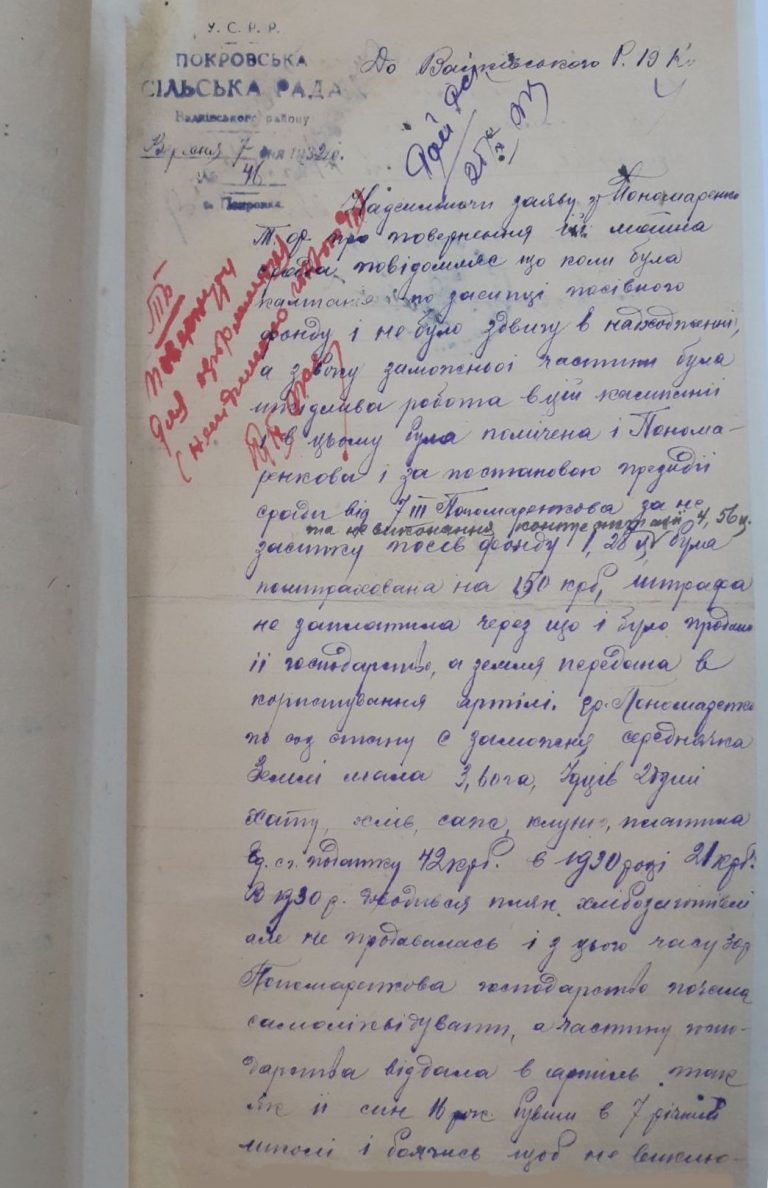 У. С. Р. Р.
ПОКРОВСЬКА
СІЛЬСЬКА РАДА
Валківського району
Вересня 7 дня 1932 р.
№ 46
с. Покровка
До Валківського Р. В К.
Надсилаючи заяву гр Пономаренко
про повернення їй майна
срада повідомляє що коли була
кампанія по засипці посівного
фонду і не було здвигу в надходженні,
а з боку заможньої частини була
шкідлива робота в цій кампанії
і в цьому була помічена і Понома-
ренкова і за постановою президії
сради від 7 III Пономаренкова за не
та невиконання контрактації 4,56 ц.
засипку посів фонду 1,28 ц була
поштрахована на 150 крб, штрафа
не заплатила через що і було продано
її господарство, а земля передана в
користування артілі. гр. Пономаренко
по соц стану є заможня середнячка
Землі мала 3, га, їдців 2 душі
хату, хлів, саж, клуню, платила
сг. податку 42 крб. в 1930 році 21 крб.
В 1930 р. доводився плян хлібозаготівлі
але не продавалась і з цього часу гр
Пономаренкова господарство почала
самоліквідувати, а частину госпо-
дарства віддала в артіль так
як її син 16 рок. бувши в 7 річній
школі і боячись щоб не виклю-
повернути
для оформлення